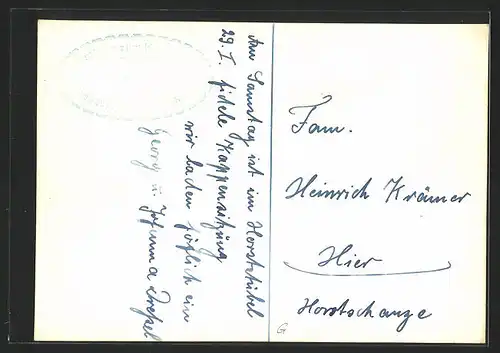 Am Samstag ist im Horststübel
29. I. fidele Kappensitzung
wir laden höflich ein
Georg u. Johanna
Fam.
Heinrich Krämer
Hier
Horstschanze
G